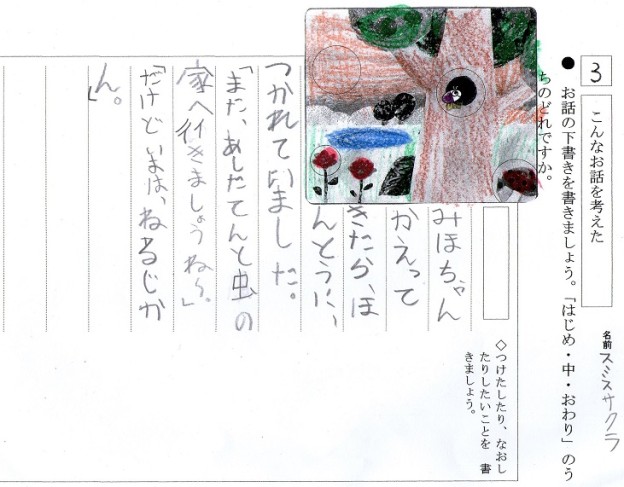 3
こんなお話を考えた
名前 スミスサクラ
● お話の下書きを書きましょう。「はじめ・中・おわり」のう
ちのどれですか。
◇つけたしたり、なおし
たりしたいことを 書
きましょう。
みほちゃん
かえって
きたら、ほ
んとうに、
つかれていました。
「また、あしたてんと虫の
家へ行きましょうね。」
「だけどいまは、ねるじか
ん。」